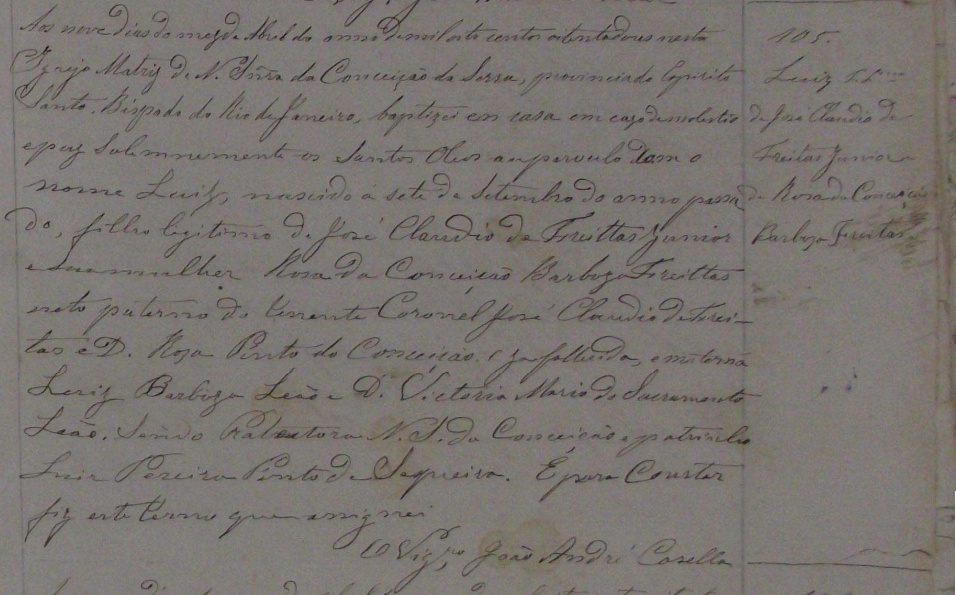 Aos nove dias do mez de Abril do anno de mil oito centos oitenta dous nesta
Igreja Matriz de N. Snra da Conceição da Serra, provincia do Espirito
Santo. Bispado do Rio de Janeiro, baptizei em casa em cazo de molestia
e puz solemnemente os Santos Oleos ao parvulo com o
nome Luiz, nascido á sete de Setembro do anno passa
do, filho legitimo de José Claudio de Freittas Junior
e sua mulher Rosa da Conceição Barboza Freittas
neto paterno do Tenente Coronel José Claudio de Frei-
tas e D. Rosa Pinto da Conceição. já fallecida, e materna
Luiz Barboza Leão e D. Victoria Maria do Sacramento
Leão. Sendo N. S. da Conceição e padrinho
Luiz Pereira Pinto de Sequeira. E para constar
fiz este termo que assignei
O Vigro João André Casella
105.
Luiz
de José Claudio de
Freitas Junior
de Rosa da Conceição
Barboza Freitas